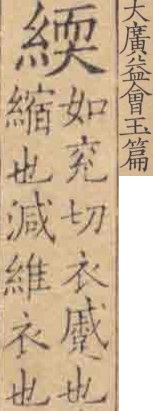 大廣益會玉篇
緛
如兖切衣戚也
縮也減維衣也